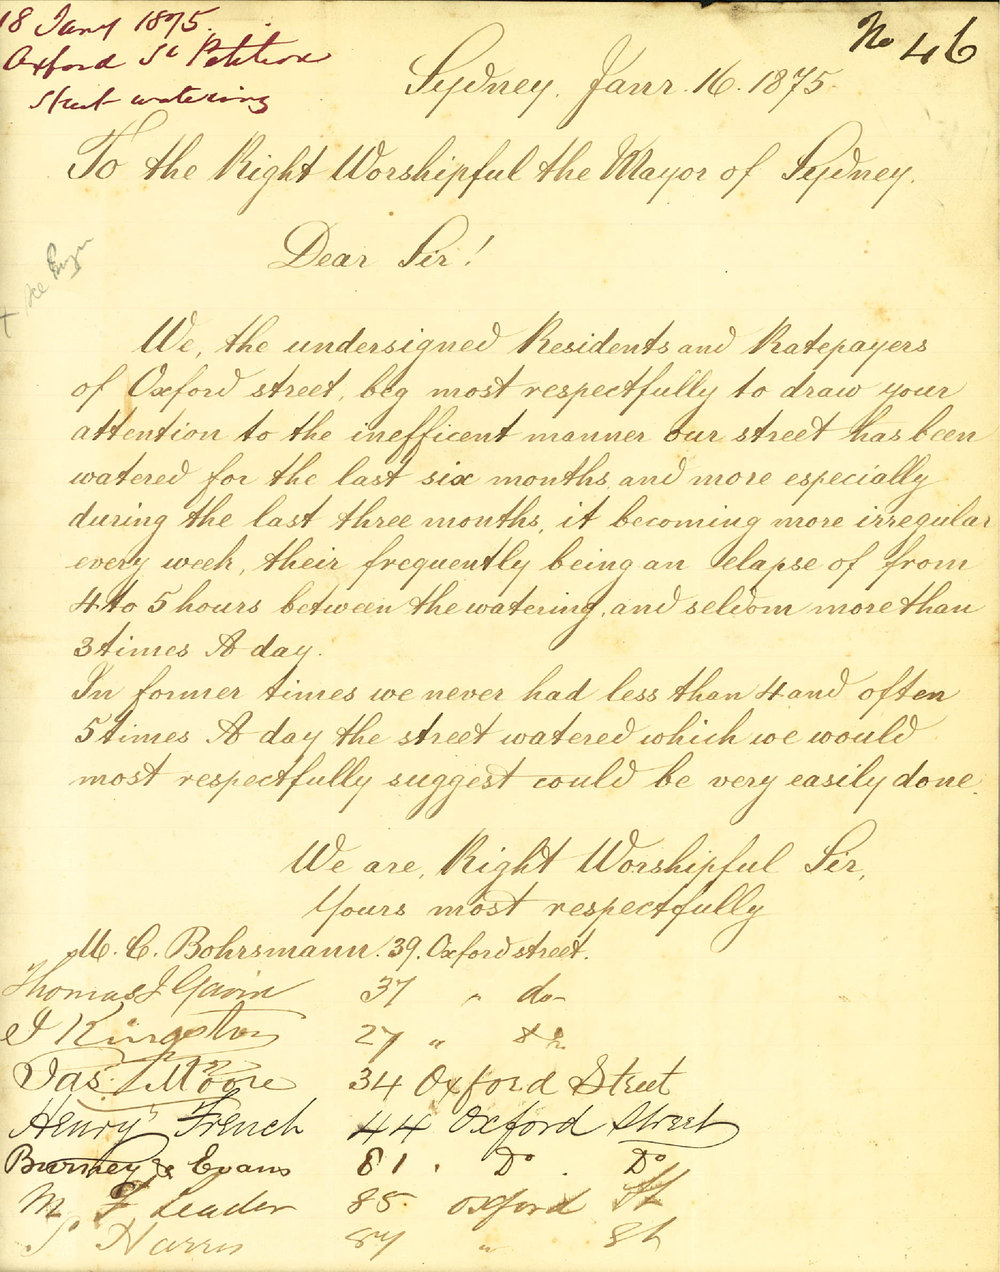 18 Jany 1875.
Oxford St Petition
Street watering
No 46
Sydney, Janr. 16. 1875
To the Right Worshipful the Mayor of Sydney.
Dear Sir!
We, the undersigned Residents and Ratepayers
of Oxford street, beg most respectfully to draw your
attention to the inefficent manner our street has been
watered for the last six months, and more especially
during the last three months, it becoming more irregular
every week, their frequently being an elapse of from
4 to 5 hours between the watering, and seldom more than
3 times A day.
In former times we never had less than 4 and often
5 times A day the street watered which we would
most respectfully suggest could be very easily done.
We are, Right Worshipful Sir,
Yours most respectfully
M. C. Bohrsmann. 39. Oxford street.
Thomas J Gavin 37 " do-
J Kingston 27 "
Jas. Moore 34 Oxford Street
Henry French 44 Oxford Street
Burney & Evans 81. Do. Do
M F Leader 85. Oxford St
S Harris 87 " St